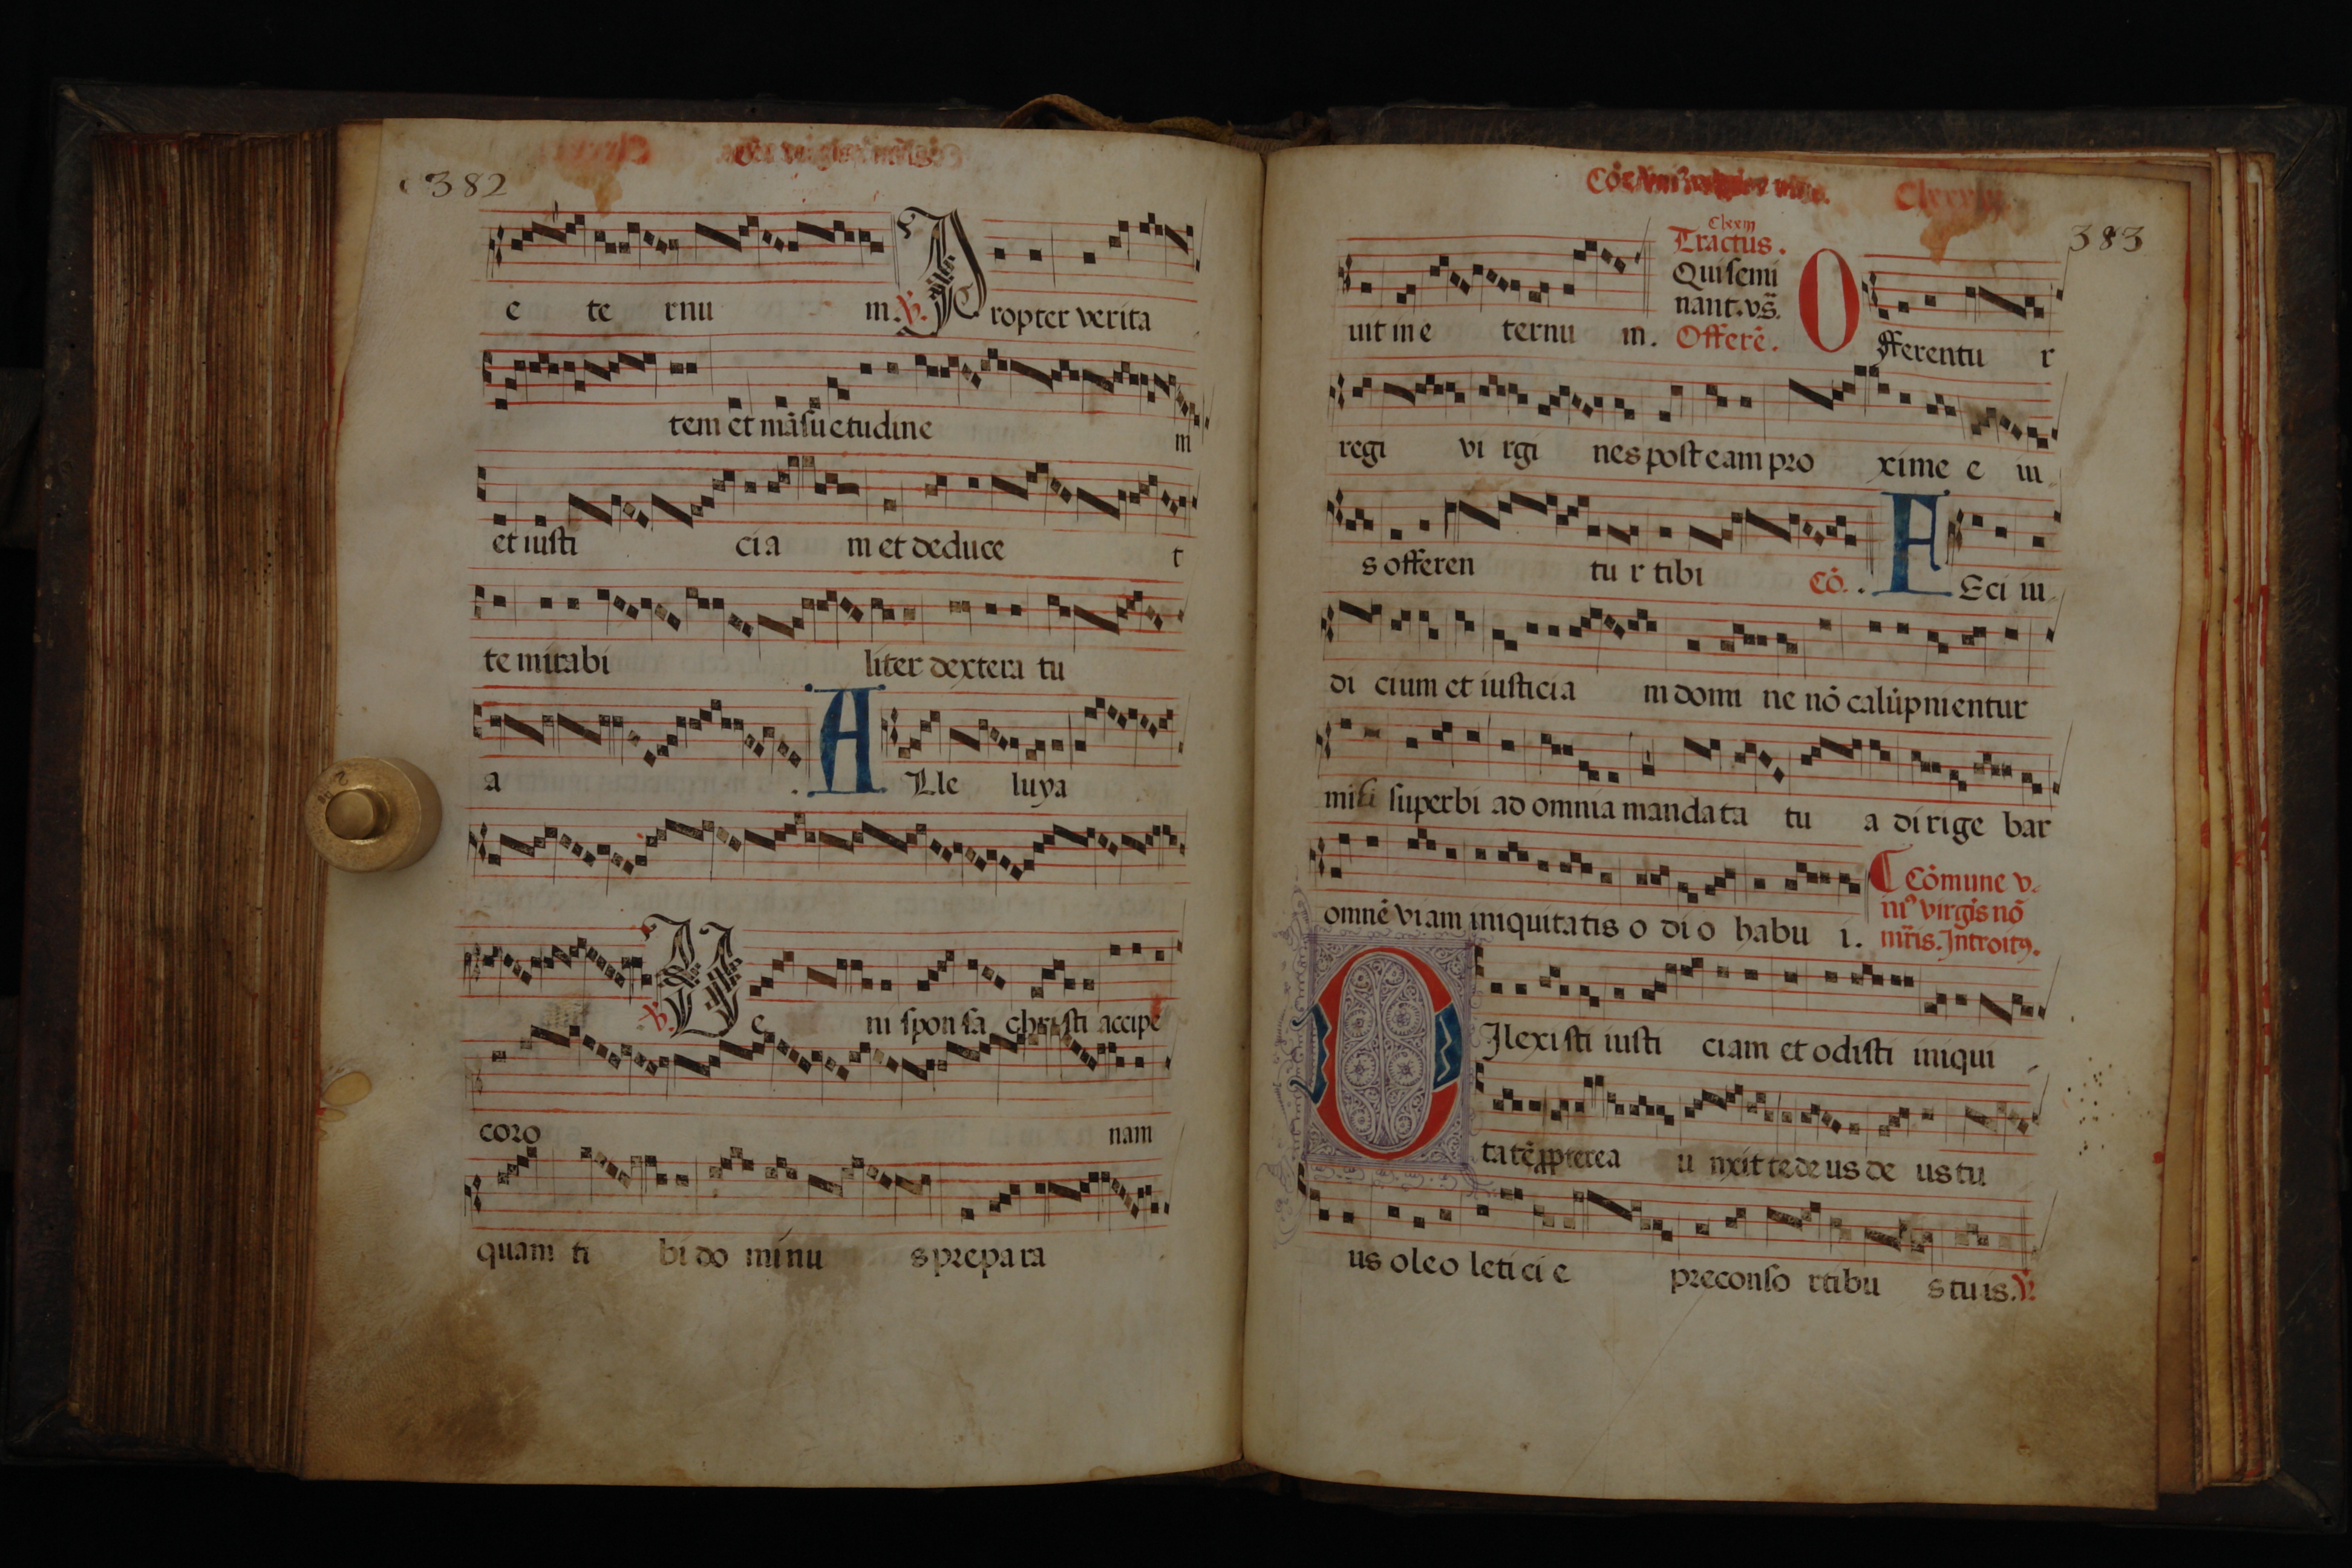 382
e te rnu m. ℣. Propter verita
tem et mãſuetudine m
et iuſti cia m et deduce t
te mirabi liter dextera tu
a . ALle luya
℣. Ve ni ſponſa chriſti accipe
coro nam
quam ti bi do minu s prepara
383
Clxxiij
Tractus.
Qui ſemi
nant. vs̃.
Offerẽ.
uit in e ternu m.
Offerentu r
regi vi rgi nes poſt eam pro xime e iu
s offeren tu r tibi Cõ. . FEci iu
di cium et iuſticia m domi ne nõ calũpnientur
mihi ſuperbi ad omnia mandata tu a dirige bar
omnẽ viam iniquitatis o di o habu i.
Cõmune v
niꝰ virgĩs nõ
mr̃is. Introitꝰ.
DIlexiſti iuſti ciam et odiſti iniqui
tatẽ ꝓpterea u nxit te deus de us tu
us oleo leticie preconſo rtibu s tuis. ℣.